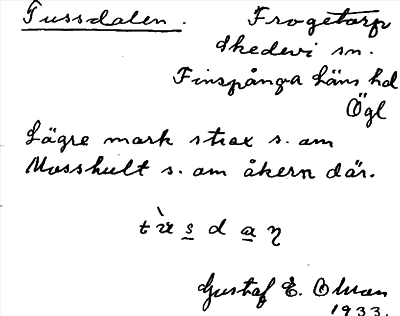 Tussdalen. Frogetorp
Skedevi sn.
Finspånga läns hd
Ögl
Lägre mark strax s. om
Mosshult s. om åkern där.
tùsdaŋ
Gustaf E. Ohman
1933.